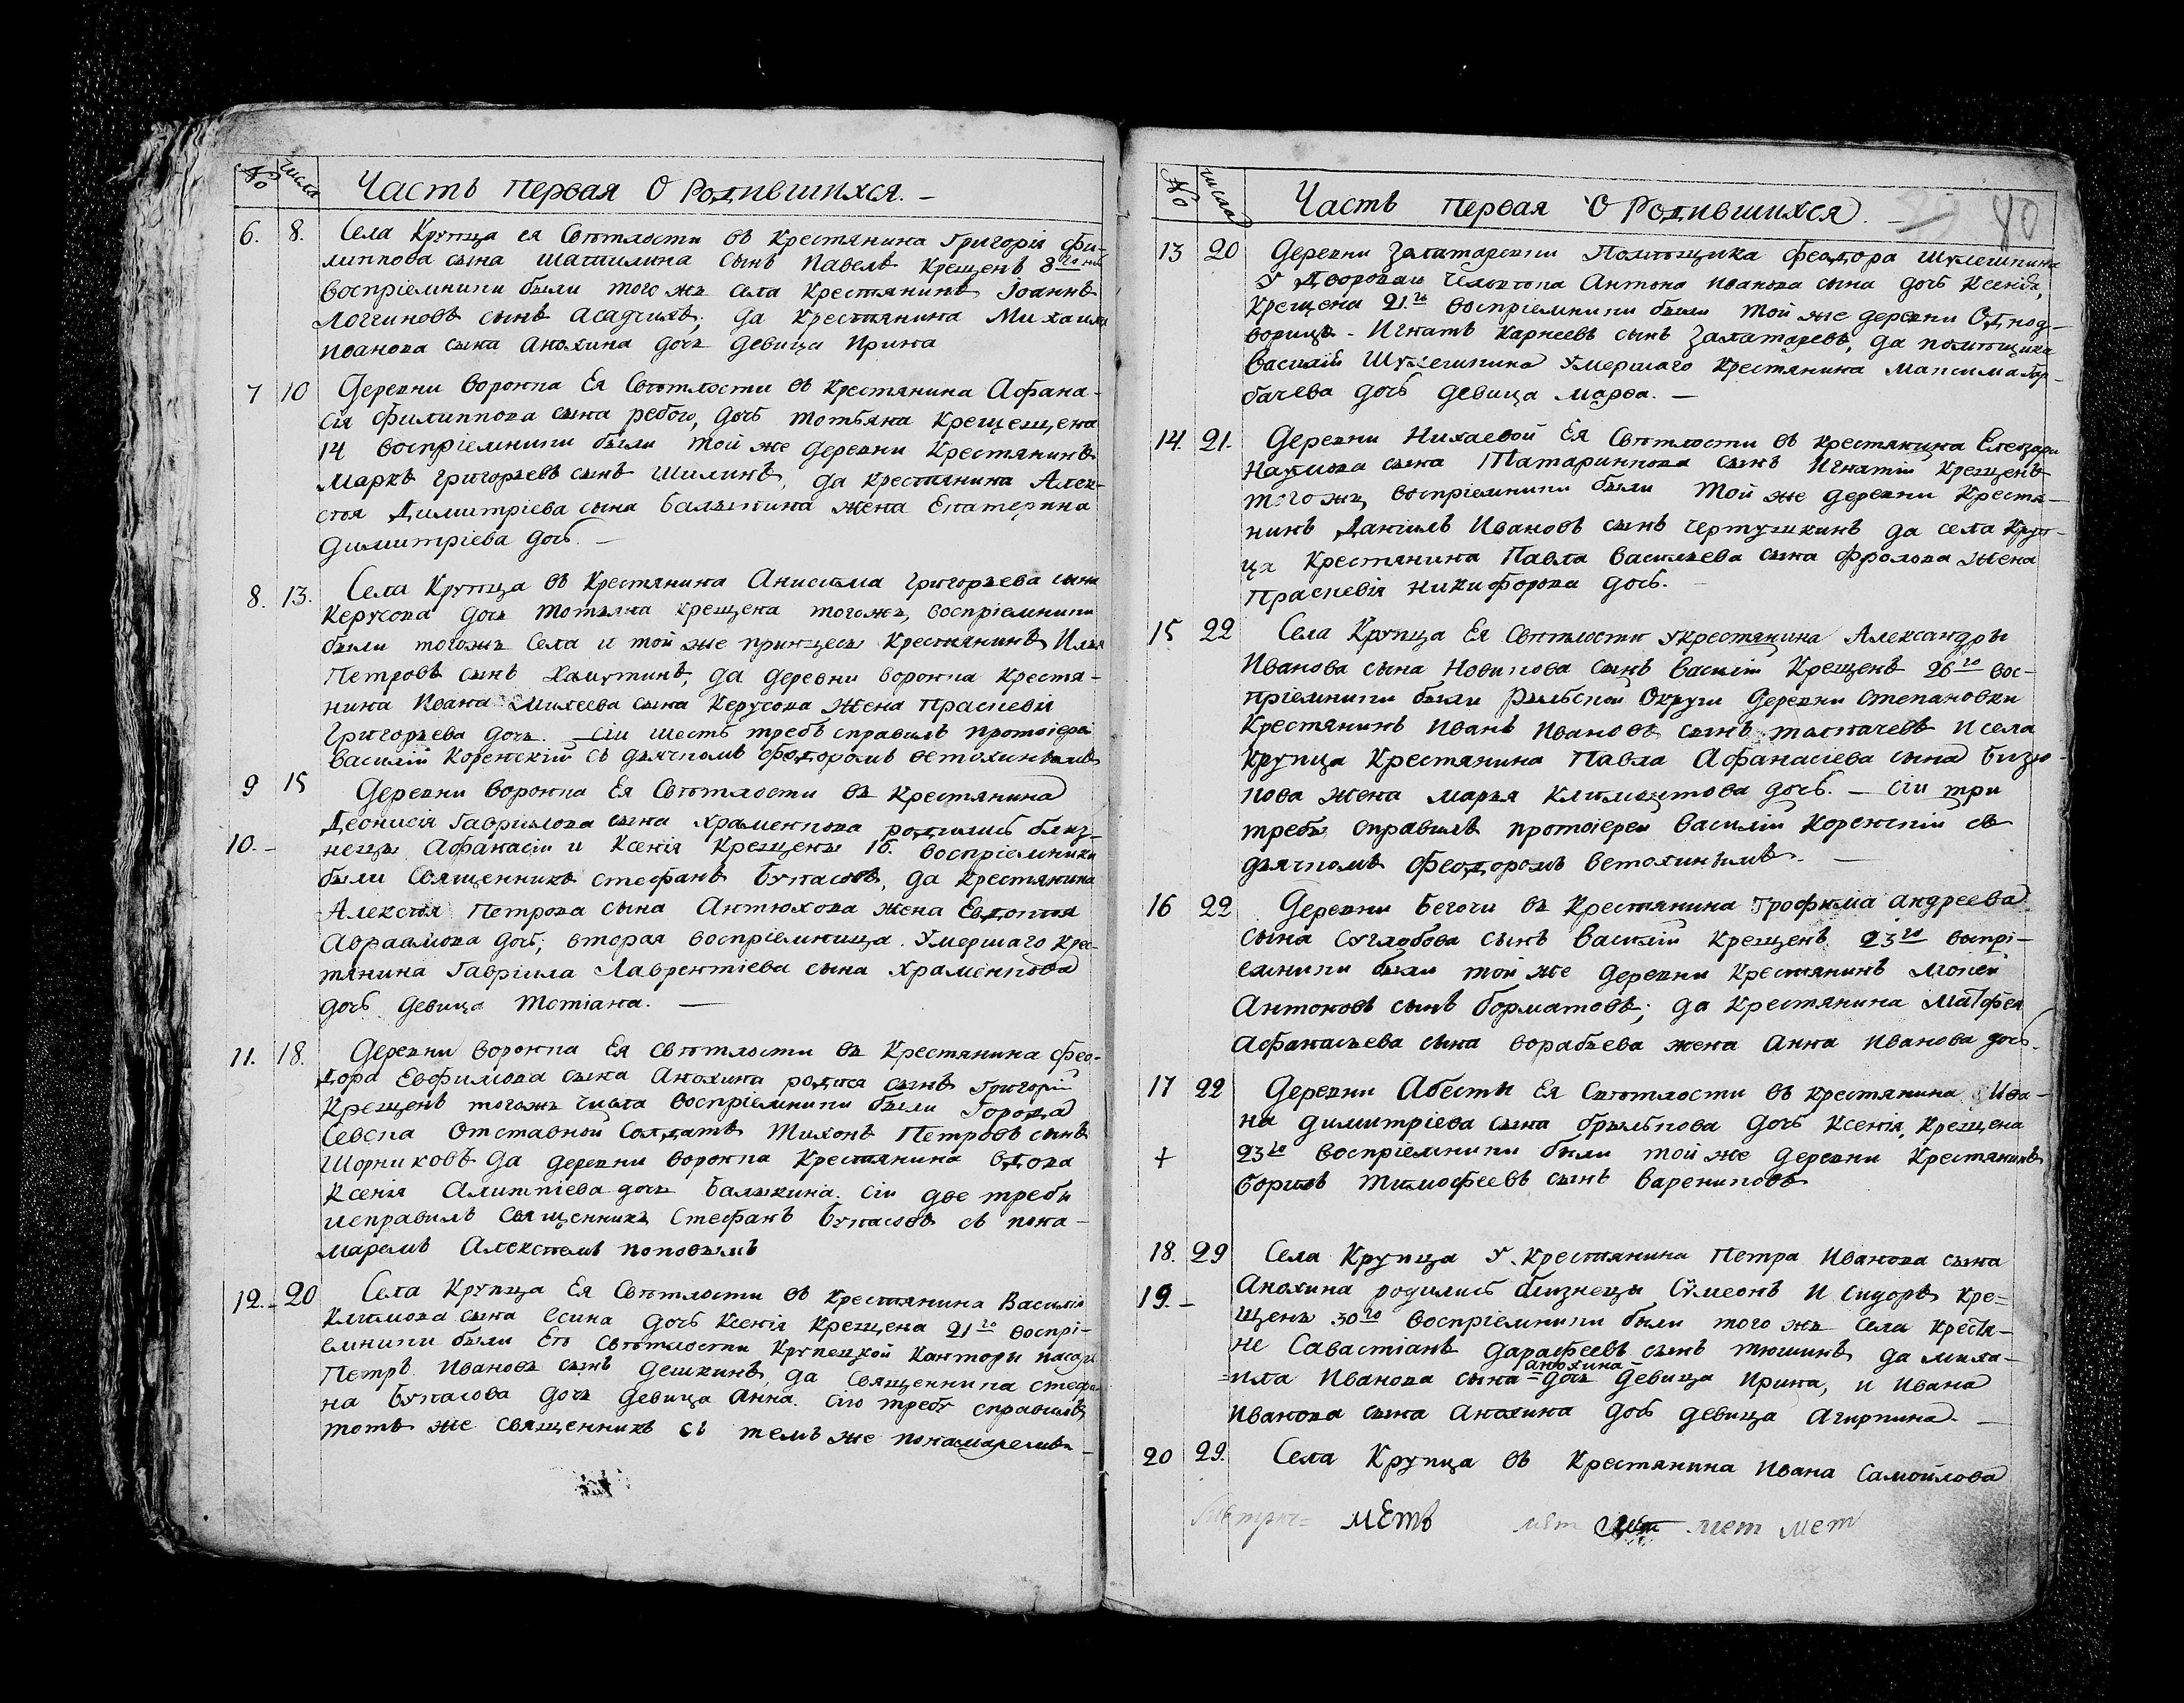 № числа Часть первая О Родившихся. –
6. 8. Села Крупца ея Светлости въ крестянина Григорія Фи-
липпова сына Шатилина сынъ Павелъ крещенъ 8го
восприемники были того жъ села крестянинъ Іоаннъ
Логгиновъ сынъ Асадчихъ, да крестянина Михаила
Иванова сына Анохина дочь девица Ирина
7 10 Деревни Воронка Ея Светлости въ крестянина Афана-
сія Филиппова сына ребого, дочь Тотьяна крещещена
14 восприемники были той же деревни крестянинъ
Маркъ Григорьевъ сынъ Шилинъ, да крестянина Алек-
сѣя Димитріева сына Балыкина жена Екатерина
Димитріева дочь. –
8. 13. Села Крупца въ крестянина Анисима Григорьева сына
Керусова дочь Тотьяна крещена тогожъ, восприемники
были тогожъ села и той же принцесы крестянинъ Илья
Петровъ сынъ Хамутинъ, да деревни Воронка крестя-
нина Ивана Михеева сына Керусова жена Праскевія
Григорьева дочь. – сіи шесть требъ справилъ протоіерей
Василій Коренскій съ дьячкомъ Феодоромъ Ветохинымъ
9 15 Деревни Воронка Ея Светлости въ крестянина
Деонисія Гаврилова сына Храменкова родились близ-
10. – нецы Афанасіи и Ксенія крещены 16. восприемники
были священникъ Стефанъ Букасовъ, да крестянина
Алексѣя Петрова сына Антюхова жена Евдокія
Авраамова дочь; вторая восприемница умершаго крес-
тянина Гавріила Лаврентіева сына Храменкова
дочь девица Тотіана. –
11. 18. Деревни Воронка Ея Светлости въ крестянина Фео-
дора Евфимова сына Анохина родися сынъ Григорій
крещенъ тогожъ числа восприемники были города
Севска отставной солдатъ Тихонъ Петровъ сынъ
Шорниковъ да деревни Воронка крестянина вдова
Ксенія Алимпіева дочь Балыкина. сіи две требы
исправилъ священникъ Стефанъ Букасовъ съ пона-
маремъ Алексѣемъ Поповымъ
12. – 20 Села Крупца Ея Светлости въ крестянина Василія
Климова сына Есина дочь Ксенія крещена 21го воспри-
емники были Его Светлости Крупецкой канторы писарь
Петръ Ивановъ сынъ Дешкинъ, да священника Стефа-
на Букасова дочь девица Анна. сію требу справилъ
тотъ же священникъ съ темъ же понамаремъ –
№ числа Часть первая О Родившихся. – 80
13 20 Деревни Залатаревки помѣщика Феодора Шулешкина
у дворовои человека Антона Иванова сына дочь Ксенія,
крещена 21.го восприемники были той же деревни однод-
ворицъ – Игнатъ Карнеевъ сынъ Залатаревъ, да помѣщика
Василія Шулешкина умершаго крестянина Максима Гор-
бачева дочь девица Марфа. –
14. 21. Деревни Нихаевой Ея Светлости въ крестянина Елеозара
Наумова сына Татаринкова сынъ Игнатіи крещенъ
того жъ, восприемники были той же деревни крестя-
нинъ Даніилъ Ивановъ сынъ Чертушкинъ да села Круп-
ца крестянина Павла Васильева сына Фролова жена
Праскевія Никифорова дочь.
15 22 Села Крупца Ея Светлости у крестянина Александры
Иванова сына Новикова сынъ Василій крещенъ 26го вос-
приемники были Рыльской округи деревни Степановки
крестянинъ Иванъ Ивановъ сынъ Ткачевъ и села
Крупца крестянина Павла Афанасіева сына Бизю-
кова жена Марья Климонтова дочь. – сіи три
требы справилъ протоіерей Василій Коренскій съ
дьячкомъ Феодоромъ Ветохинымъ. –
16 22 Деревни Бегочи въ крестянина Трофима Андреева
сына Суглобова сынъ Василій крещенъ 23го воспри-
емники были той же деревни крестянинъ Мокей
Антоновъ сынъ Борматовъ; да крестянина Матфея
Афанасьева сына Воробьева жена Анна Иванова дочь.
17 22 Деревни Абесты Ея Светлости въ крестянина Ива-
на Димитріева сына Брылькова дочь Ксенія, крещена
+ 23го восприемники были той же деревни крестянинъ
Борисъ Тимофеевъ сынъ Вареникковъ
18. 29 Села Крупца у крестянина Петра Иванова сына
19. – Анохина родились близнецы Сумеонъ и Сидоръ кре=
щены 30го восприемники были того жъ села крестя-
не Савастіанъ Дарафеевъ сынъ Тюшинъ да Миха-
=ила Иванова сына Анохина дочь девица Ирина, и Ивана
Иванова сына Анохина дочь девица Агирпина. –
20 29. Села Крупца въ крестянина Ивана Самойлова
Метри= мЕтъ мет мет мет